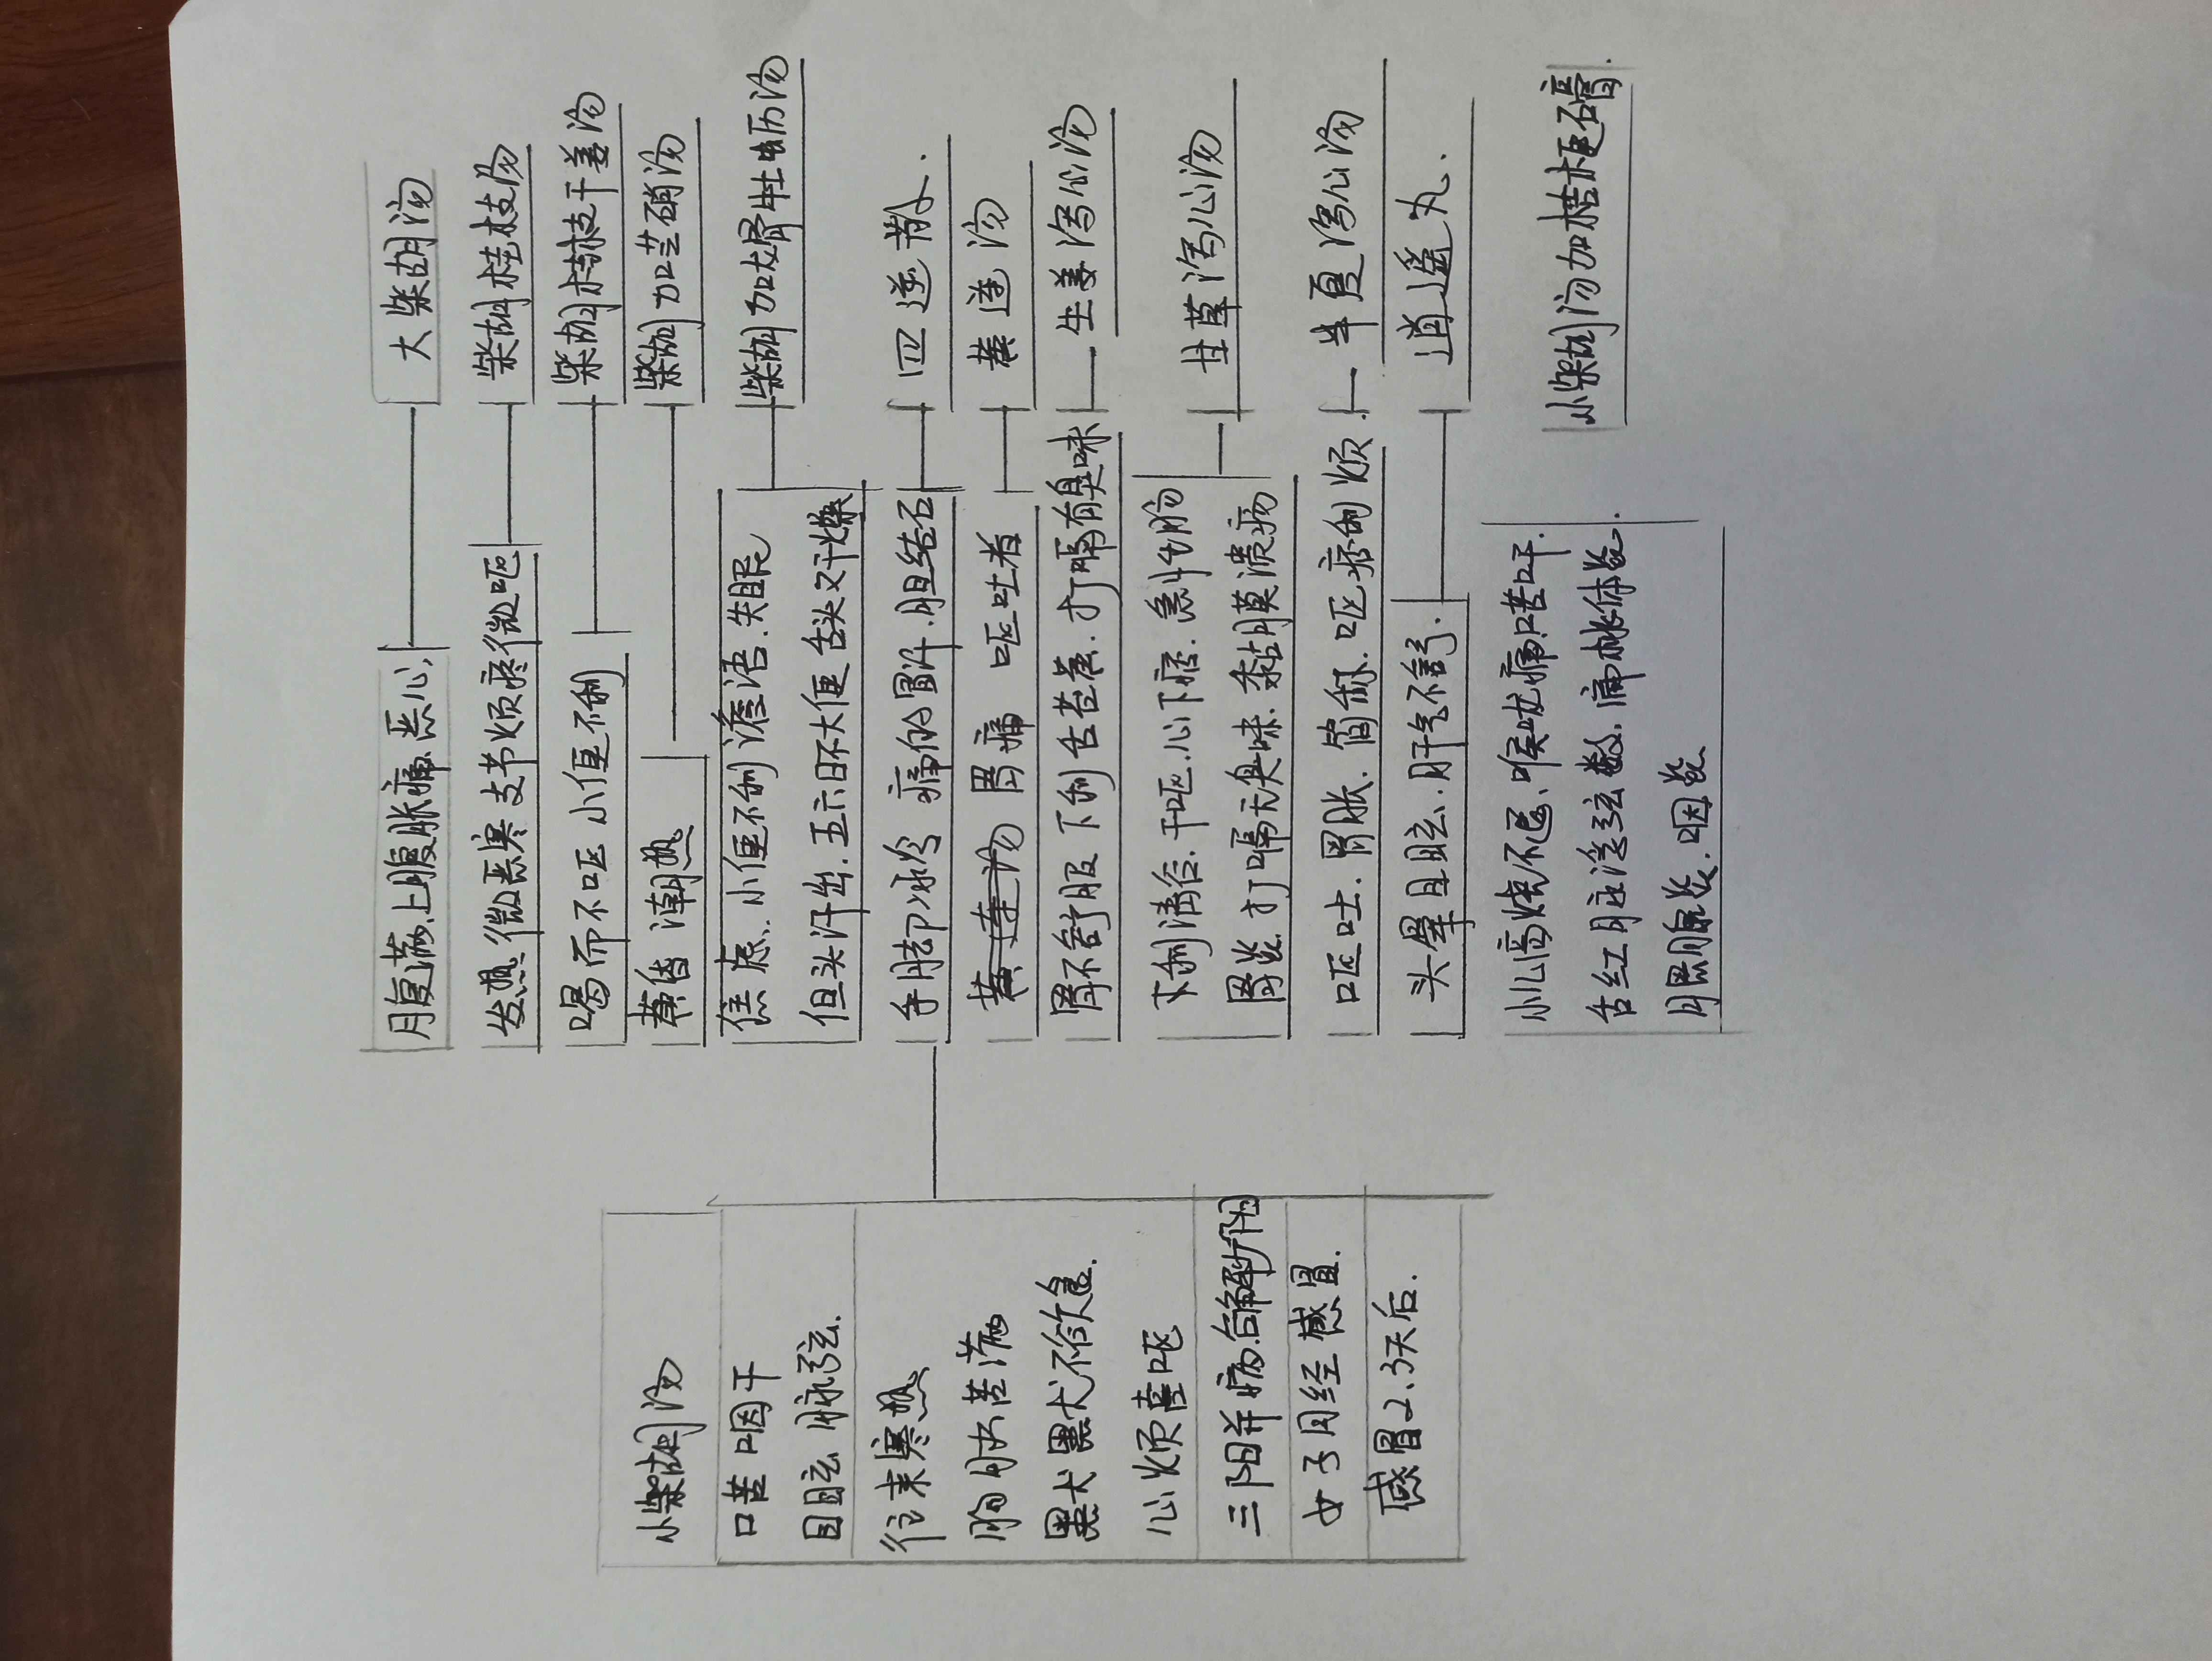 小柴胡汤
口苦咽干
目眩脉弦.
往来寒热
胸胁苦满
默默不欲食.
心烦喜呕
三阳并病.合解少阳
女子月经感冒.
感冒2.3天后.
腹满.上腹胀痛.恶心.
大柴胡汤
发热.微恶寒支节烦疼微呕
柴胡桂枝汤
喝而不呕 小便不利
柴胡桂枝干姜汤
潮热
柴胡加芒硝汤
焦虑.小便不利 谵语.失眠
但头汗出.五六日不大便 舌头又干燥
柴胡加龙骨牡蛎汤
手脚冰冷 痛的冒汗.胆结石
四逆散.
胃痛 呕吐者
黄连汤
胃不舒服 下利 舌苔黄.打嗝有臭味
生姜泻心汤
下利清谷.干呕.心下痞.急性肠
胃炎.打嗝无臭味.黏膜溃疡
甘草泻心汤
呕吐.胃胀.简称.呕痞利烦.
半夏泻心汤
头晕目眩.肝气不舒.
逍遥丸.
小儿高烧不退.喉咙痛口苦口干.
舌红 脉浮弦数.扁桃体炎.
腮腺炎.咽炎
小柴胡汤加桔梗石膏.